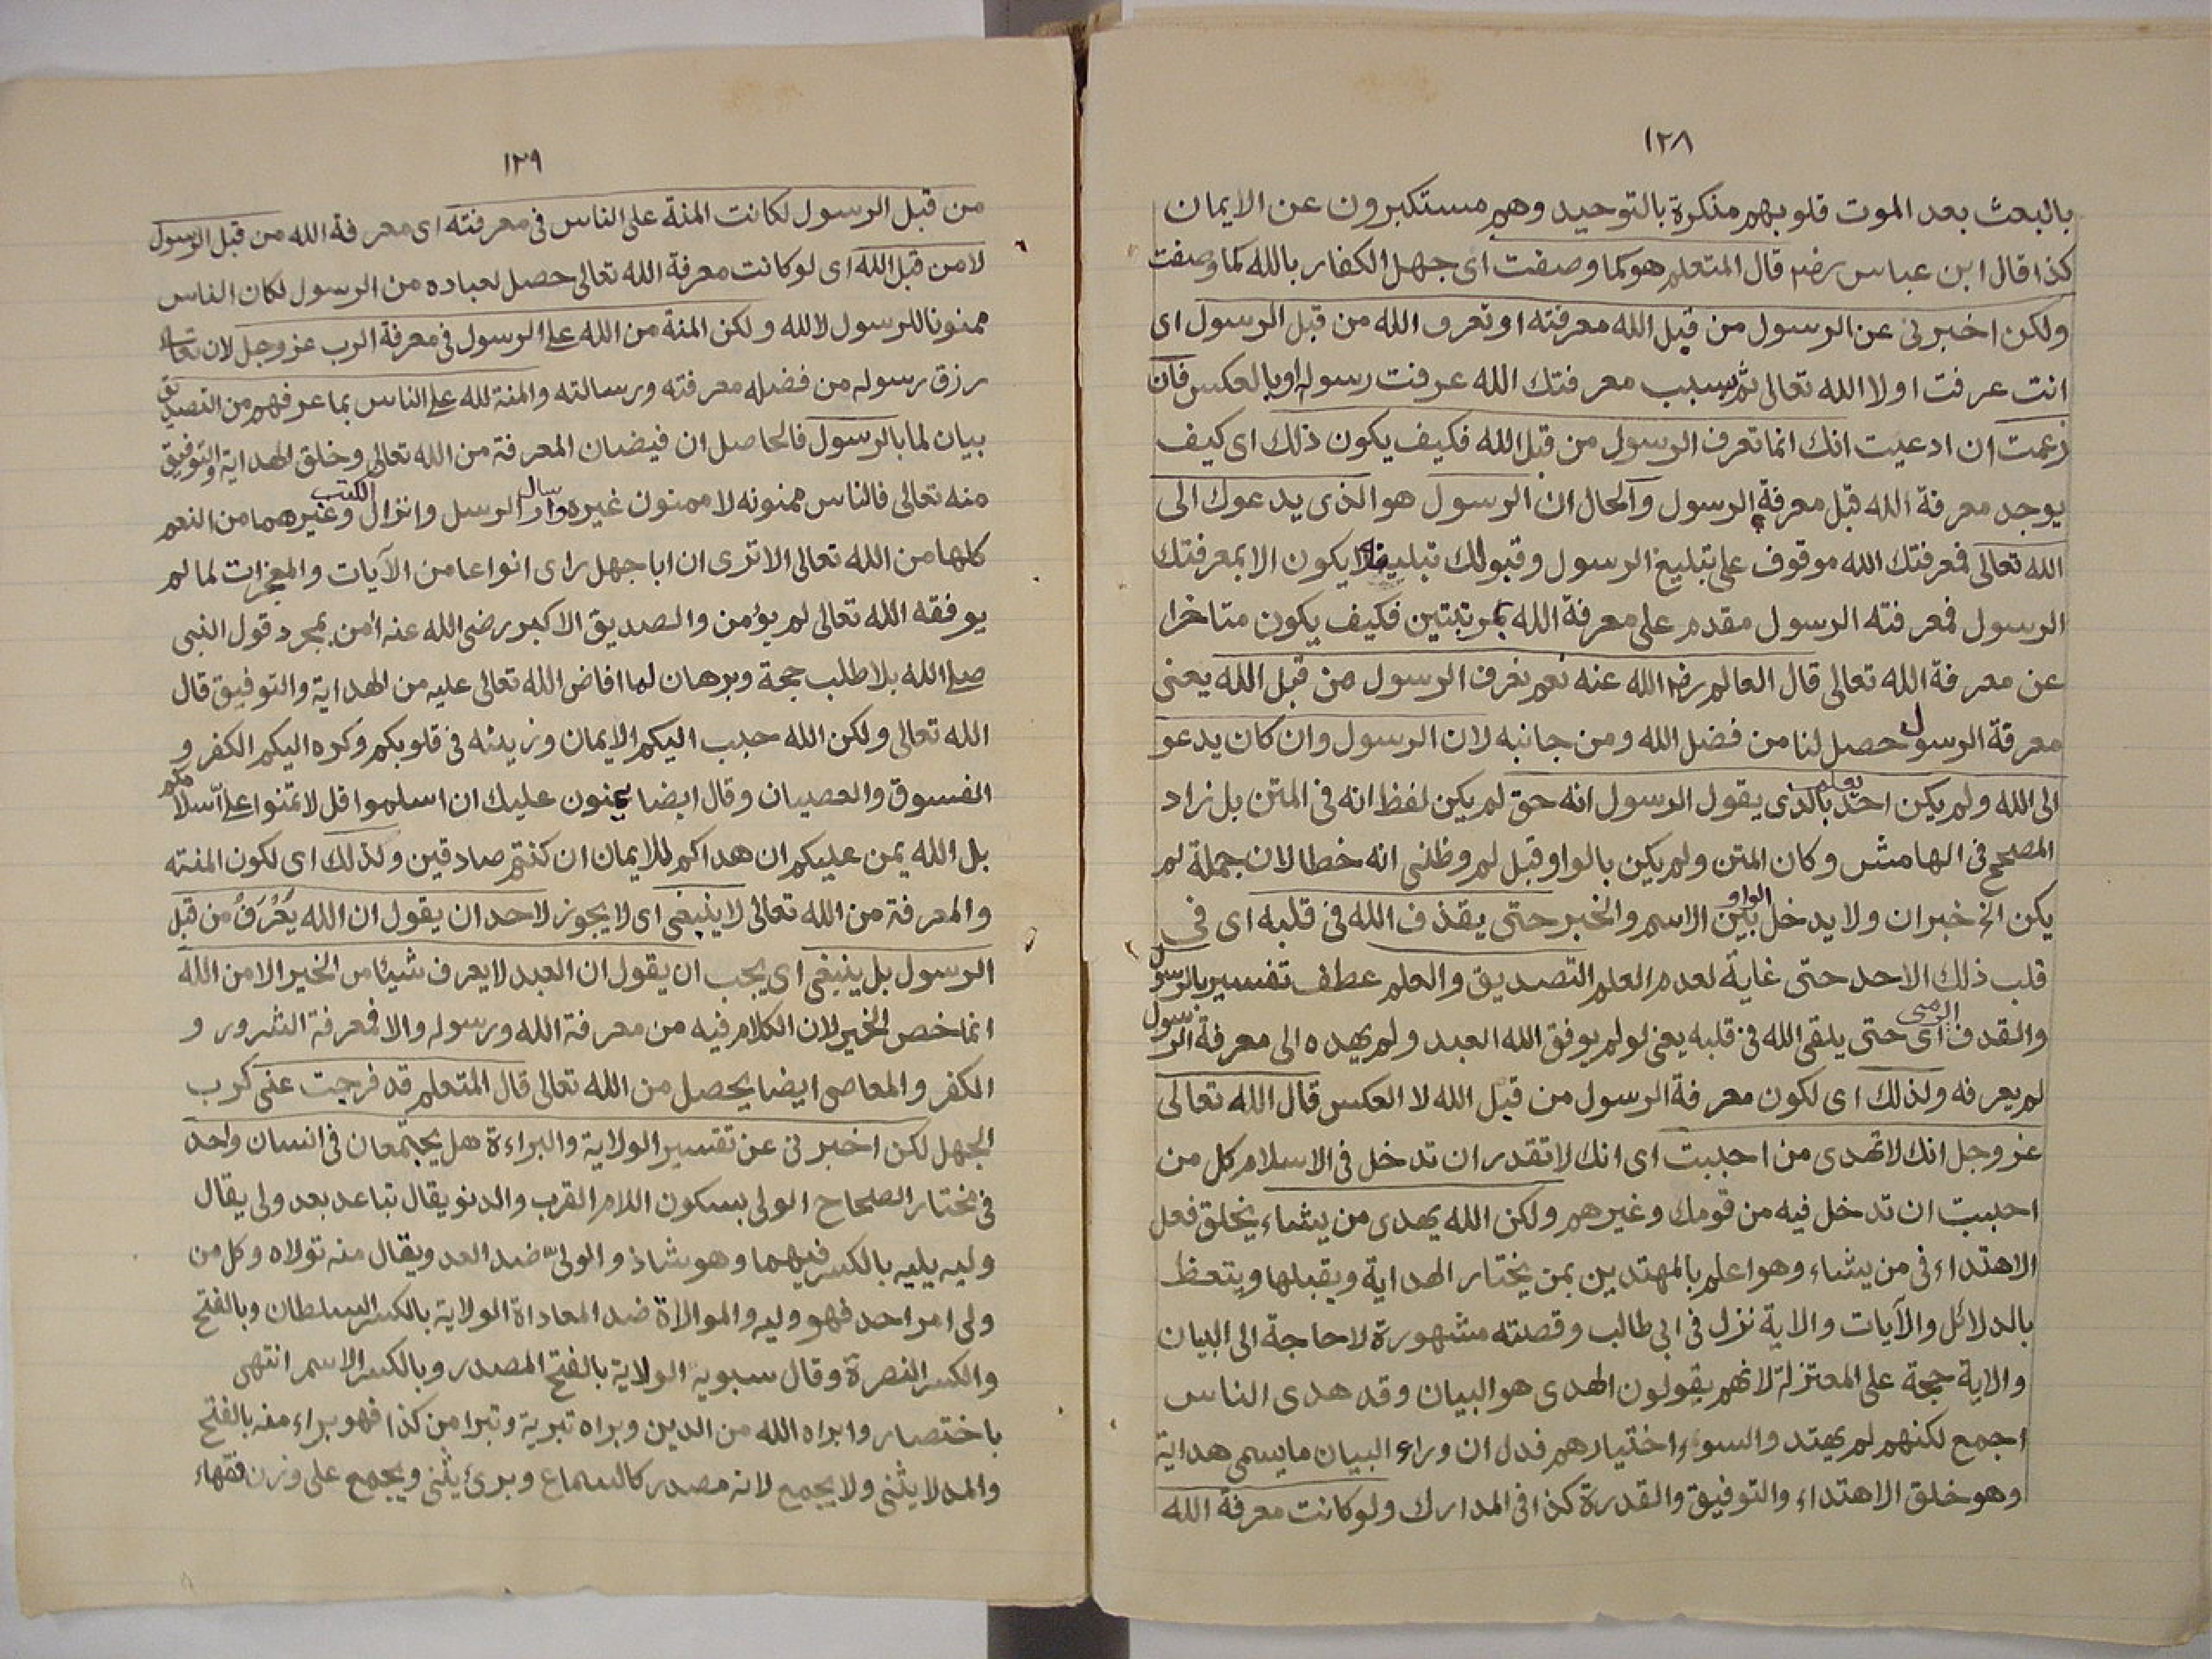 ١٢٨
بالبعث بعد الموت قلوبهم منكرة بالتوحيد وهم مستكبرون عن الايمان
كذا قال ابن عباس رضـ قال المتعلم هو كما وصفت اى جهل الكفار بالله كما وصفت
ولكن اخبرنى عن الرسول من قبل الله معرفته او تعرف الله من قبل الرسول اى
انت عرفت اولا الله تعالى ثم بسبب معرفتك الله عرفت رسوله او بالعكس فان
زعمت ان ادعيت انك انما تعرف الرسول من قبل الله فكيف يكون ذلك اى كيف
يوجد معرفة الله قبل معرفة الرسول والحال ان الرسول هو الذى يدعوك الى
الله تعالى فمعرفتك الله موقوف على تبليغ الرسول وقبولك تبليغه لا يكون الا بمعرفتك
الرسول فمعرفته الرسول مقدم على معرفة الله بمرتبتين فكيف يكون متاخرا
عن معرفة الله تعالى قال العالم رضـ الله عنه نعم نعرف الرسول من قبل الله يعنى
معرفة الرسول حصل لنا من فضل الله ومن جانبه لان الرسول وان كان يدعو
الى الله ولم يكن احد يعلم بالذى يقول الرسول انه حق لم يكن لفظ انه فى المتن بل زاد
المصحح فى الهامش وكان المتن ولم يكن بالواو قبل لم وظنى انه خطا لان جملة لم
يكن الخ خبر ان ولا يدخل الواو بين الاسم والخبر حتى يقذف الله فى قلبه اى فى
قلب ذلك الاحد حتى غاية لعدم العلم التصديق والعلم عطف تفسير بالرسول
والقدف الرمى اى حتى يلقى الله فى قلبه يعنى لو لم يوفق الله العبد ولم يهده الى معرفة الرسول
لم يعرفه ولذلك اى لكون معرفة الرسول من قبل الله لا العكس قال الله تعالى
عز وجل انك لا تهدى من احببت اى انك لا تقدر ان تدخل فى الاسلام كل من
احببت ان تدخل فيه من قومك وغيرهم ولكن الله يهدى من يشاء يخلق فعل
الاهتداء فى من يشاء وهو اعلم بالمهتدين بمن يختار الهداية ويقبلها ويتعظ
بالدلائل والآيات والاية نزل فى ابى طالب وقصته مشهورة لا حاجة الى البيان
والاية حجة على المعتزلة لانهم يقولون الهدى هو البيان وقد هدى الناس
اجمع لكنهم لم يهتد والسوء اختيارهم فدل ان وراء البيان ما يسمى هداية
وهو خلق الاهتداء والتوفيق والقدرة كذا فى المدارك ولو كانت معرفة الله
١٢٩
من قبل الرسول لكانت المنة على الناس فى معرفته اى معرفة الله من قبل الرسول
لا من قبل الله اى لو كانت معرفة الله تعالى حصل لعباده من الرسول لكان الناس
ممنونا للرسول لا لله ولكن المنة من الله على الرسول فى معرفة الرب عز وجل لان تعالى
رزق رسوله من فضله معرفته ورسالته والمنة لله على الناس بما عرفهم من التصديق
بيان لما بالرسول فالحاصل ان فيضان المعرفة من الله تعالى وخلق الهداية والتوفيق
منه تعالى فالناس ممنونه لا ممنون غيره وارسال الرسل وانزال الكتب وغيرهما من النعم
كلها من الله تعالى الا ترى ان ابا جهل راى انواعا من الآيات والمعجزات لما لم
يوفقه الله تعالى لم يؤمن والصديق الاكبر رضى الله عنه أمن بمجرد قول النبى
صلى الله بلا طلب حجة وبرهان لما افاض الله تعالى عليه من الهداية والتوفيق قال
الله تعالى ولكن الله حبب اليكم الايمان وزينه فى قلوبكم وكره اليكم الكفر و
الفسوق والعصيان وقال ايضا يمنون عليك ان اسلموا قل لا تمنوا على اسلامكم
بل الله يمن عليكم ان هداكم للايمان ان كنتم صادقين ولذلك اى لكون المنته
والمعرفة من الله تعالى لا ينبغى اى لا يجوز لاحد ان يقول ان الله يُعْرَفُ من قبل
الرسول بل ينبغى اى يجب ان يقول ان العبد لا يعرف شيئا من الخير الا من الله
انما خص الخير لان الكلام فيه من معرفة الله ورسوله والا فمعرفة الشرور و
الكفر والمعاصى ايضا يحصل من الله تعالى قال المتعلم قد فرجت عنى كرب
الجهل لكن اخبرنى عن تفسير الولاية والبراءة هل يجتمعان فى انسان واحد
فى مختار الصحاح الولى بسكون اللام القرب والدنو يقال تباعد بعد ولى يقال
وليه يليه بالكسر فيهما وهو شاذ والولىّ ضد العد ويقال منه تولاه وكل من
ولى امر احد فهو وليه والموالاة ضد المعاداة الولاية بالكسر السلطان وبالفتح
والكسر النصرة وقال سبوية الولاية بالفتح المصدر وبالكسر الاسم انتهى
باختصار وابراه الله من الدين وبراه تبرية وتبرا من كذا فهو براء منه بالفتح
والمد لا يثنى ولا يجمع لانه مصدر كالسماع وبرئ يثنى ويجمع على وزن فقهاء